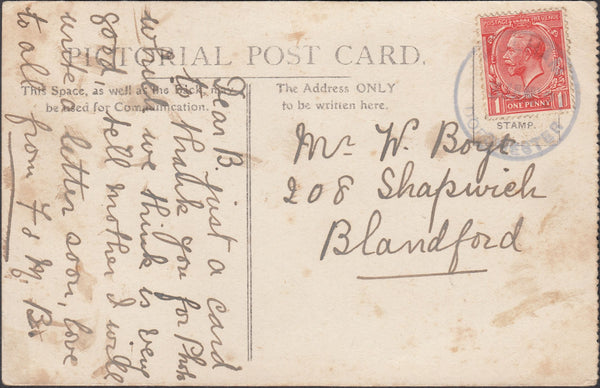 PICTORIAL POST CARD.
This Space, as well as the Back, may
be used for Communication.
The Address ONLY
to be written here.
Dear B. Just a card
to thank you for Photo
which we think is very
good, tell mother I will
write a letter soon, love
to all from F & M. B.
POSTAGE REVENUE
1 ONE PENNY 1
STAMP.
DORCHESTER
Mr W. Boyt
208 Shapwick
Blandford